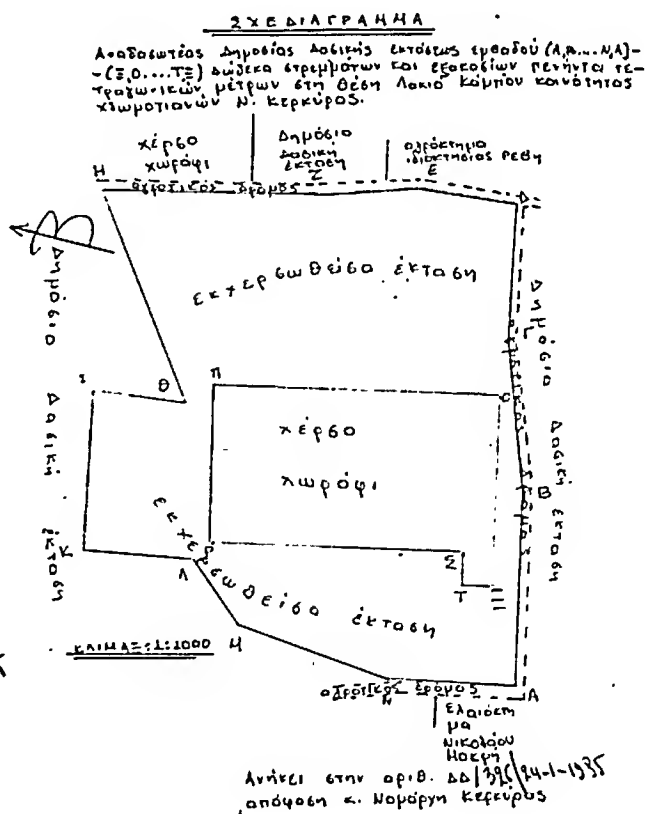 ΣΧΕΔΙΑΓΡΑΜΜΑ
Αναδασωτέας Δημοσίας Δασικής εκτάσεως εμβαδού (Α,Β....Ν,Α)-
-(Ξ,Ο....ΤΞ) Δώδεκα στρεμμάτων και εξακοσίων πενήντα τε-
τραγωνικών μέτρων στη θέση Λακιό Κάμπου κοινότητας
Χλωμοτιανών Ν. Κερκύρας.
χέρσο
χωράφι
Δημόσιο
δασική
έκταση
αγρόκτημα
ιδιοκτησίας Ρεβη
Η
Ζ
Ε
Δ
αγροτικός δρόμος
εκχερσωθείσα έκταση
Δημόσιο δασική έκταση
Δημόσιο δασική έκταση
Γ
αγροτικός δρόμος
Ι
Θ
Π
Ο
χέρσο
χωράφι
Β
Κ
Λ
Ρ
Σ
Τ
Ξ
εκχερσωθείσα έκταση
Μ
ΚΛΙΜΑΞ:1:1000
αγροτικός δρόμος
Ν
Α
Ελαιόκτη
μα
Νικολάου
Μακρή
Ανήκει στην αριθ. ΔΔ/ 24-1-1935
απόφαση κ. Νομάρχη Κερκύρας